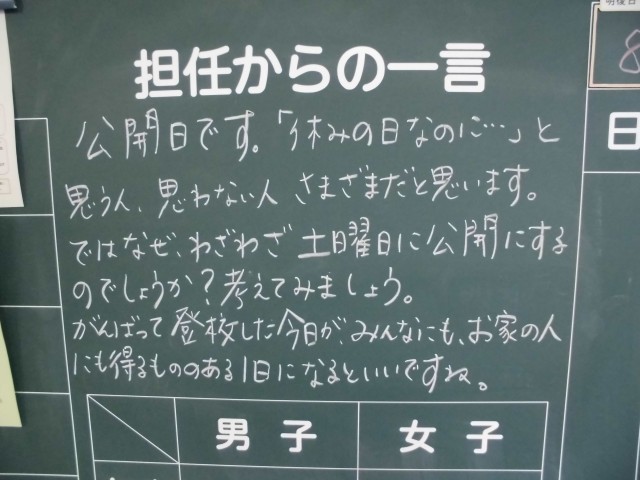 明後日
8
担任からの一言
日
公開日です。「休みの日なのに…」と
思う人、思わない人 さまざまだと思います。
ではなぜ、わざわざ 土曜日に公開にする
のでしょうか？考えてみましょう。
がんばって登校した今日が、みんなにも、お家の人
にも得るもののある1日になるといいですね。
男子
女子